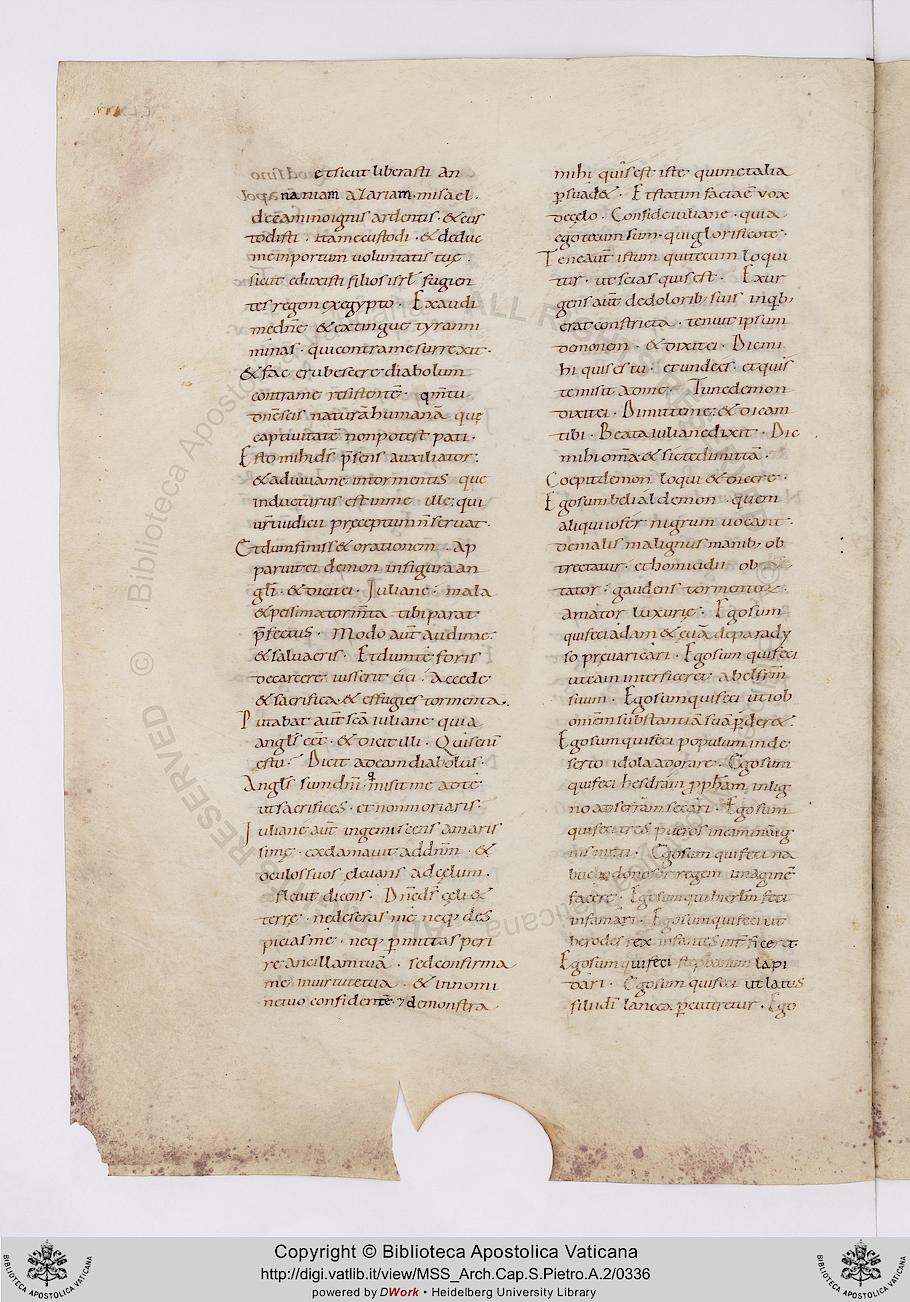 et sicut liberasti an
naniam azariam. misael.
decamino ignis ardentis. & cus
todisti. itamecustodi. & deduc
me inportum voluntatis tuę.
sicut eduxisti filios isrł fugien
tes regem exegypto. Exaudi
medn̄e & extingue tyranni
minas. qui contrame surrexit.
& fac erubescere diabolum
contrame resistentē. qm̄ tu
dn̄escis naturā humanā quę
captivitatē nonpotest pati.
Esto mihi ds̄ p̄sens auxiliator:
& adiuvame intormentis que
inducturus est inme ille: qui
iudicii pręceptum n̄ servat.
Etdum finiss& orationem. ap
paruit ei demon infigura an
gli. & dicit ei. Iuliane. mala
& pessima torm̄ta tibi parat
p̄fectus. Modo aut̄ audime:
& salvaeris. Etdumte foris
decarcere iusserit eici. Accede
& sacrifica. & effugies tormenta.
Putabat aut̄ sc̄a iuliane quia
angls̄ eēt. & dicit illi. Quis
es tu. Dicit adeam diabolus.
Angls̄ sum dn̄i. misit me adte
ut sacrifices. et non moriaris.
Iuliane aut̄ ingemiscens amaris
simę. exclamavit addn̄m. &
oculos suos elevans adcęlum.
flevit dicens. Dn̄eds̄ cęli &
terrę. nedeseras me neq; des
picias me. neq; p̄mittas peri
re ancillam tuā. sed confirma
me invirtutetua. & innomi
netuo confidentē. ⁊ demonstra
mihi quis est iste. qui metalia
p̄suad&. Et statim factaē vox
decęlo. Confide iuliane. quia
ego tecum sum. qui glorificote.
Tene aut̄ istum qui tecum loqui
tur. ut scias quis est. Exur
gens aut̄ dedoloribus suis inqb;
erat constricta. tenuit ipsum
demonem. & dixit ei. Dic mi
hi quis es tu. et unde es. et quis
te misit adme. Tunc demon
dixit ei. Dimitte me: & dicam
tibi. Beata iuliane dixit. Dic
mihi omīa & sic te dimittā.
Coepit demon loqui & dicere.
Ego sum belial demon. quem
aliqui iofer nigrum vocant.
demalis malignus manib; ob
trectatur. et homicidii
tator. gaudens tormentis.
Amator luxurię. Ego sum
qui feci adam & evā deparady
so pręvaricari. Ego sum qui feci
ut cain interficeret abel frm̄
suum. Ego sum qui feci ut iob
omēm substantiā suā p̄der&.
Ego sum qui feci populum inde
serto idola adorare. Ego sum
qui feci hesdram p̄pham̄ inlig
no ad serram secari. Ego sum
qui feci tres pueros incaminūig
nis mitti. Ego sum qui feci na
buchodonosor regem imaginē
facere. Ego sum qui hierłm feci
infamari. Ego sum qui feci ut
herodes rex infantes int̄ficeret
Ego sum qui feci stephanum lapi
dari. Ego sum qui feci ut latus
filii dī lancea p̄cuteretur. Ego
Copyright © Biblioteca Apostolica Vaticana
http://digi.vatlib.it/view/MSS_Arch.Cap.S.Pietro.A.2/0336
powered by DWork • Heidelberg University Library
BIBLIOTECA APOSTOLICA VATICANA
BIBLIOTECA APOSTOLICA VATICANA